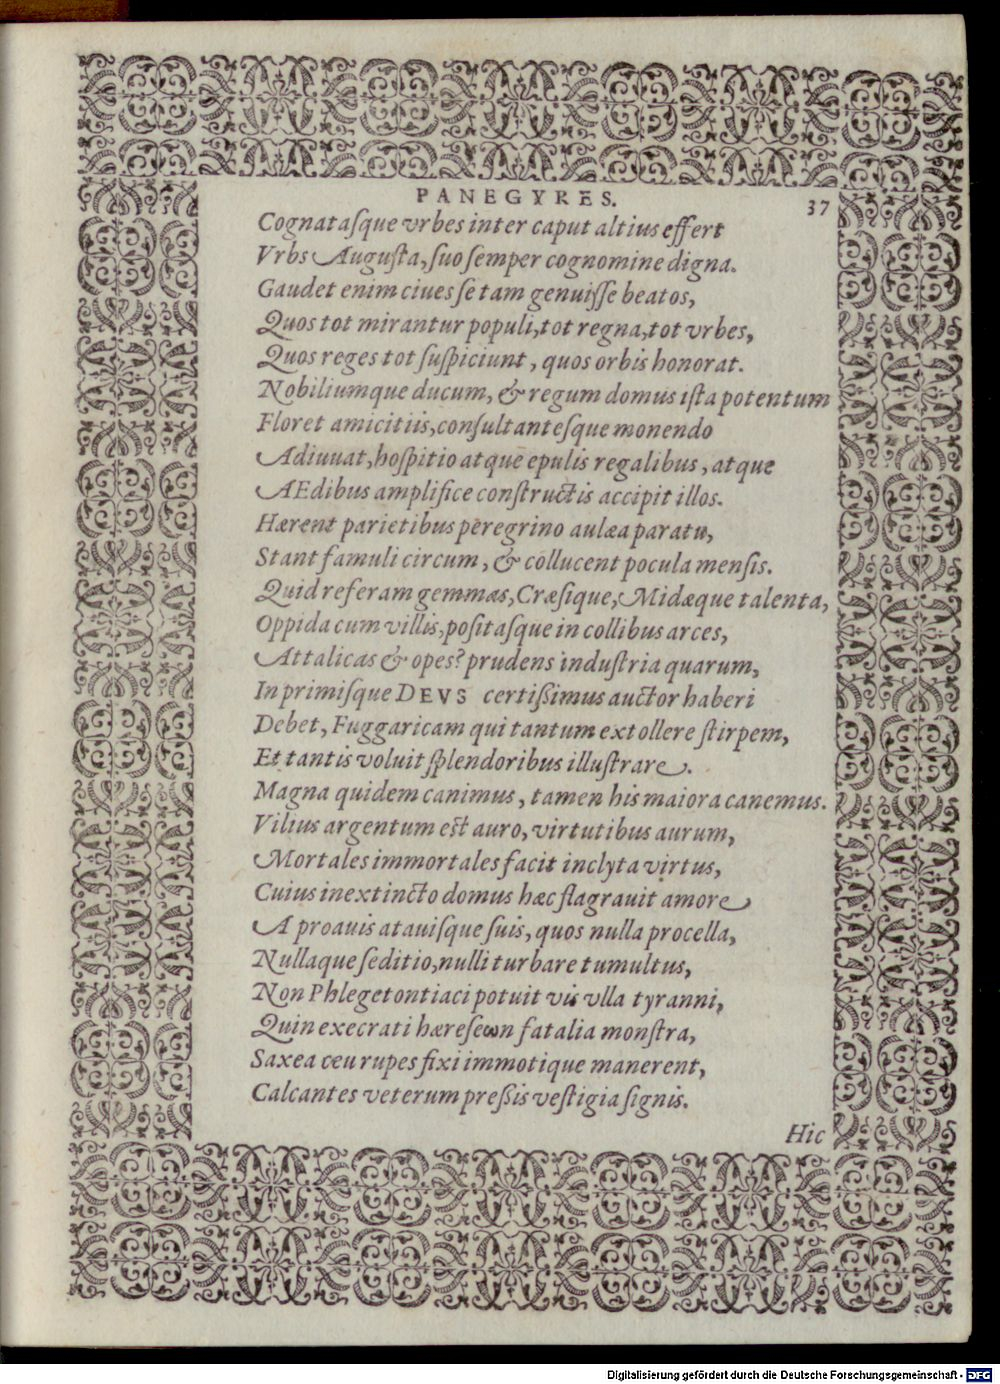 PANEGYRES. 37
Cognataſque vrbes inter caput altius effert
Vrbs Auguſta, ſuo ſemper cognomine digna.
Gaudet enim ciues ſe tam genuiſſe beatos,
Quos tot mirantur populi, tot regna, tot vrbes,
Quos reges tot ſuſpiciunt, quos orbis honorat.
Nobiliumque ducum, & regum domus iſta potentum
Floret amicitiis, conſultanteſque monendo
Adiuuat, hoſpitio atque epulis regalibus, atque
AEdibus amplifice conſtructis accipit illos.
Hærent parietibus peregrino aulæa paratu,
Stant famuli circum, & collucent pocula menſis.
Quid referam gemmas, Cræſique, Midæque talenta,
Oppida cum villis, poſitaſque in collibus arces,
Attalicas & opes? prudens induſtria quarum,
In primiſque DEVS certißimus auctor haberi
Debet, Fuggaricam qui tantum extollere ſtirpem,
Et tantis voluit ſplendoribus illuſtrare.
Magna quidem canimus, tamen his maiora canemus.
Vilius argentum eſt auro, virtutibus aurum,
Mortales immortales facit inclyta virtus,
Cuius inextincto domus hæc flagrauit amore
A proauis atauiſque ſuis, quos nulla procella,
Nullaque ſeditio, nulli turbare tumultus,
Non Phlegetontiaci potuit vis vlla tyranni,
Quin execrati hæreſeωn fatalia monſtra,
Saxea ceu rupes fixi immotique manerent,
Calcantes veterum preßis veſtigia ſignis.
Hic
Digitalisierung gefördert durch die Deutsche Forschungsgemeinschaft - DFG